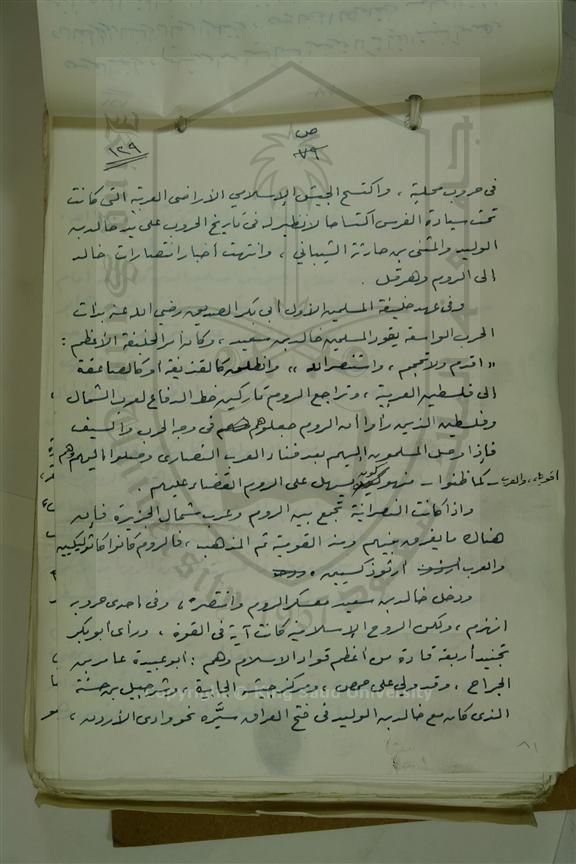 ص
٧٩
١٢٩
فى حروب محلية ، واكتسح الجيش الإسلامي الأراضى العربية التى كانت
تحت سيادة الفرس اكتساحا لا نظير له فى تاريخ الحروب على يد خالد بن
الوليد والمثنى بن حارثة الشيباني ، وانتهت أخبار انتصارات خالد
إلى الروم وهرقل .
وفى عهد خليفة المسلمين الأول أبى بكر الصديق رضي الله عنه بدأت
الحرب الواسعة يقود المسلمين خالد بن سعيد ، وكان أمر الخليفة الأعظم :
« اقدم ولا تحجم ، واستنصر الله » وانطلق كالقذيفة أو كالصاعقة
إلى فلسطين العربية ، وتراجع الروم تاركين خط الدفاع لعرب الشمال
وفلسطين الذين رأوا أن الروم جعلوهم فى وجه الحرب والسيف
فإذا وصل المسلمون إليهم بعد فناء العرب النصارى وصلوا إليهم وهم
أقوياء، والعرب ـ كما ظنوا ـ منهوكون يسهل على الروم القضاء عليهم .
وإذا كانت النصرانية تجمع بين الروم وعرب شمال الجزيرة فإن
هناك ما يفرق بينهم وهو القومية ثم المذهب ، فالروم كانوا كاثوليكيين
والعرب أرثوذكسيين .
ودخل خالد بن سعيد معسكر الروم وانتصر ، وفى احدى حروبه
انهزم ، ولكن الروح الإسلامية كانت آية فى القوة ، ورأى أبو بكر
تجنيد أربعة قادة من أعظم قواد الاسلام وهم : أبو عبيدة عامر بن
الجراح ، وقد ولي على حمص ، ومركز جيشه الجابية ، وشرحبيل بن حسنة
الذى كان مع خالد بن الوليد فى فتح العراق سيَّره نحو وادى الأردن ،
٨١
Copyright © King Saud University